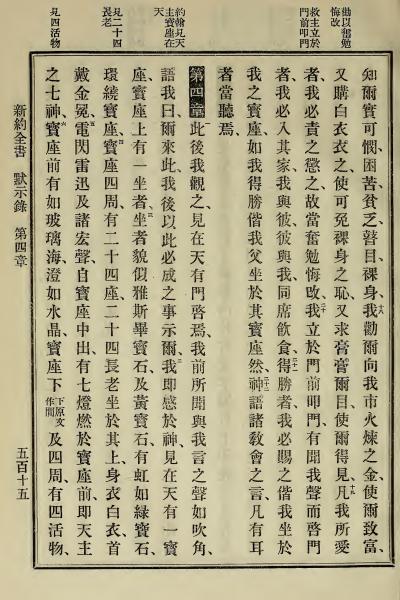 勸以奮勉
悔改
救主立於
門前叩門
約翰見天
主寶座在
天
見二十四
長老
見四活物
知爾實可憫、困苦、貧乏、瞽目、裸身、十八我勸爾向我市火煉之金、使爾致富、
又購白衣衣之、使可免裸身之恥、又求膏膏爾目、使爾得見、十九凡我所愛
者、我必責之懲之、故當奮勉悔改、二十我立於門前叩門、有聞我聲而啓門
者、我必入其家、我與彼、彼與我、同席飲食、二十一得勝者、我必賜之偕我坐於
我之寶座、如我得勝、偕我父坐於其寶座然、二十二神語諸敎會之言、凡有耳
者當聽焉、
第四章 此後我觀之、見在天有門啓焉、我前所聞與我言之聲如吹角、
語我曰、爾來此、我後以此必成之事示爾、二我卽感於神、見在天有一寶
座、寶座上有一坐者、三坐者貌似雅斯畢寶石、及黃寶石、有虹如綠寶石、
環繞寶座、四寶座四周、有二十四座、二十四長老坐於其上、身衣白衣、首
戴金冕、五電閃雷迅及諸宏聲、自寶座中出、有七燈燃於寶座前、卽天主
之七神、六寶座前有如玻璃海、澄如水晶、寶座下下原文作間及四周、有四活物、
新約全書 默示錄 第四章 五百十五